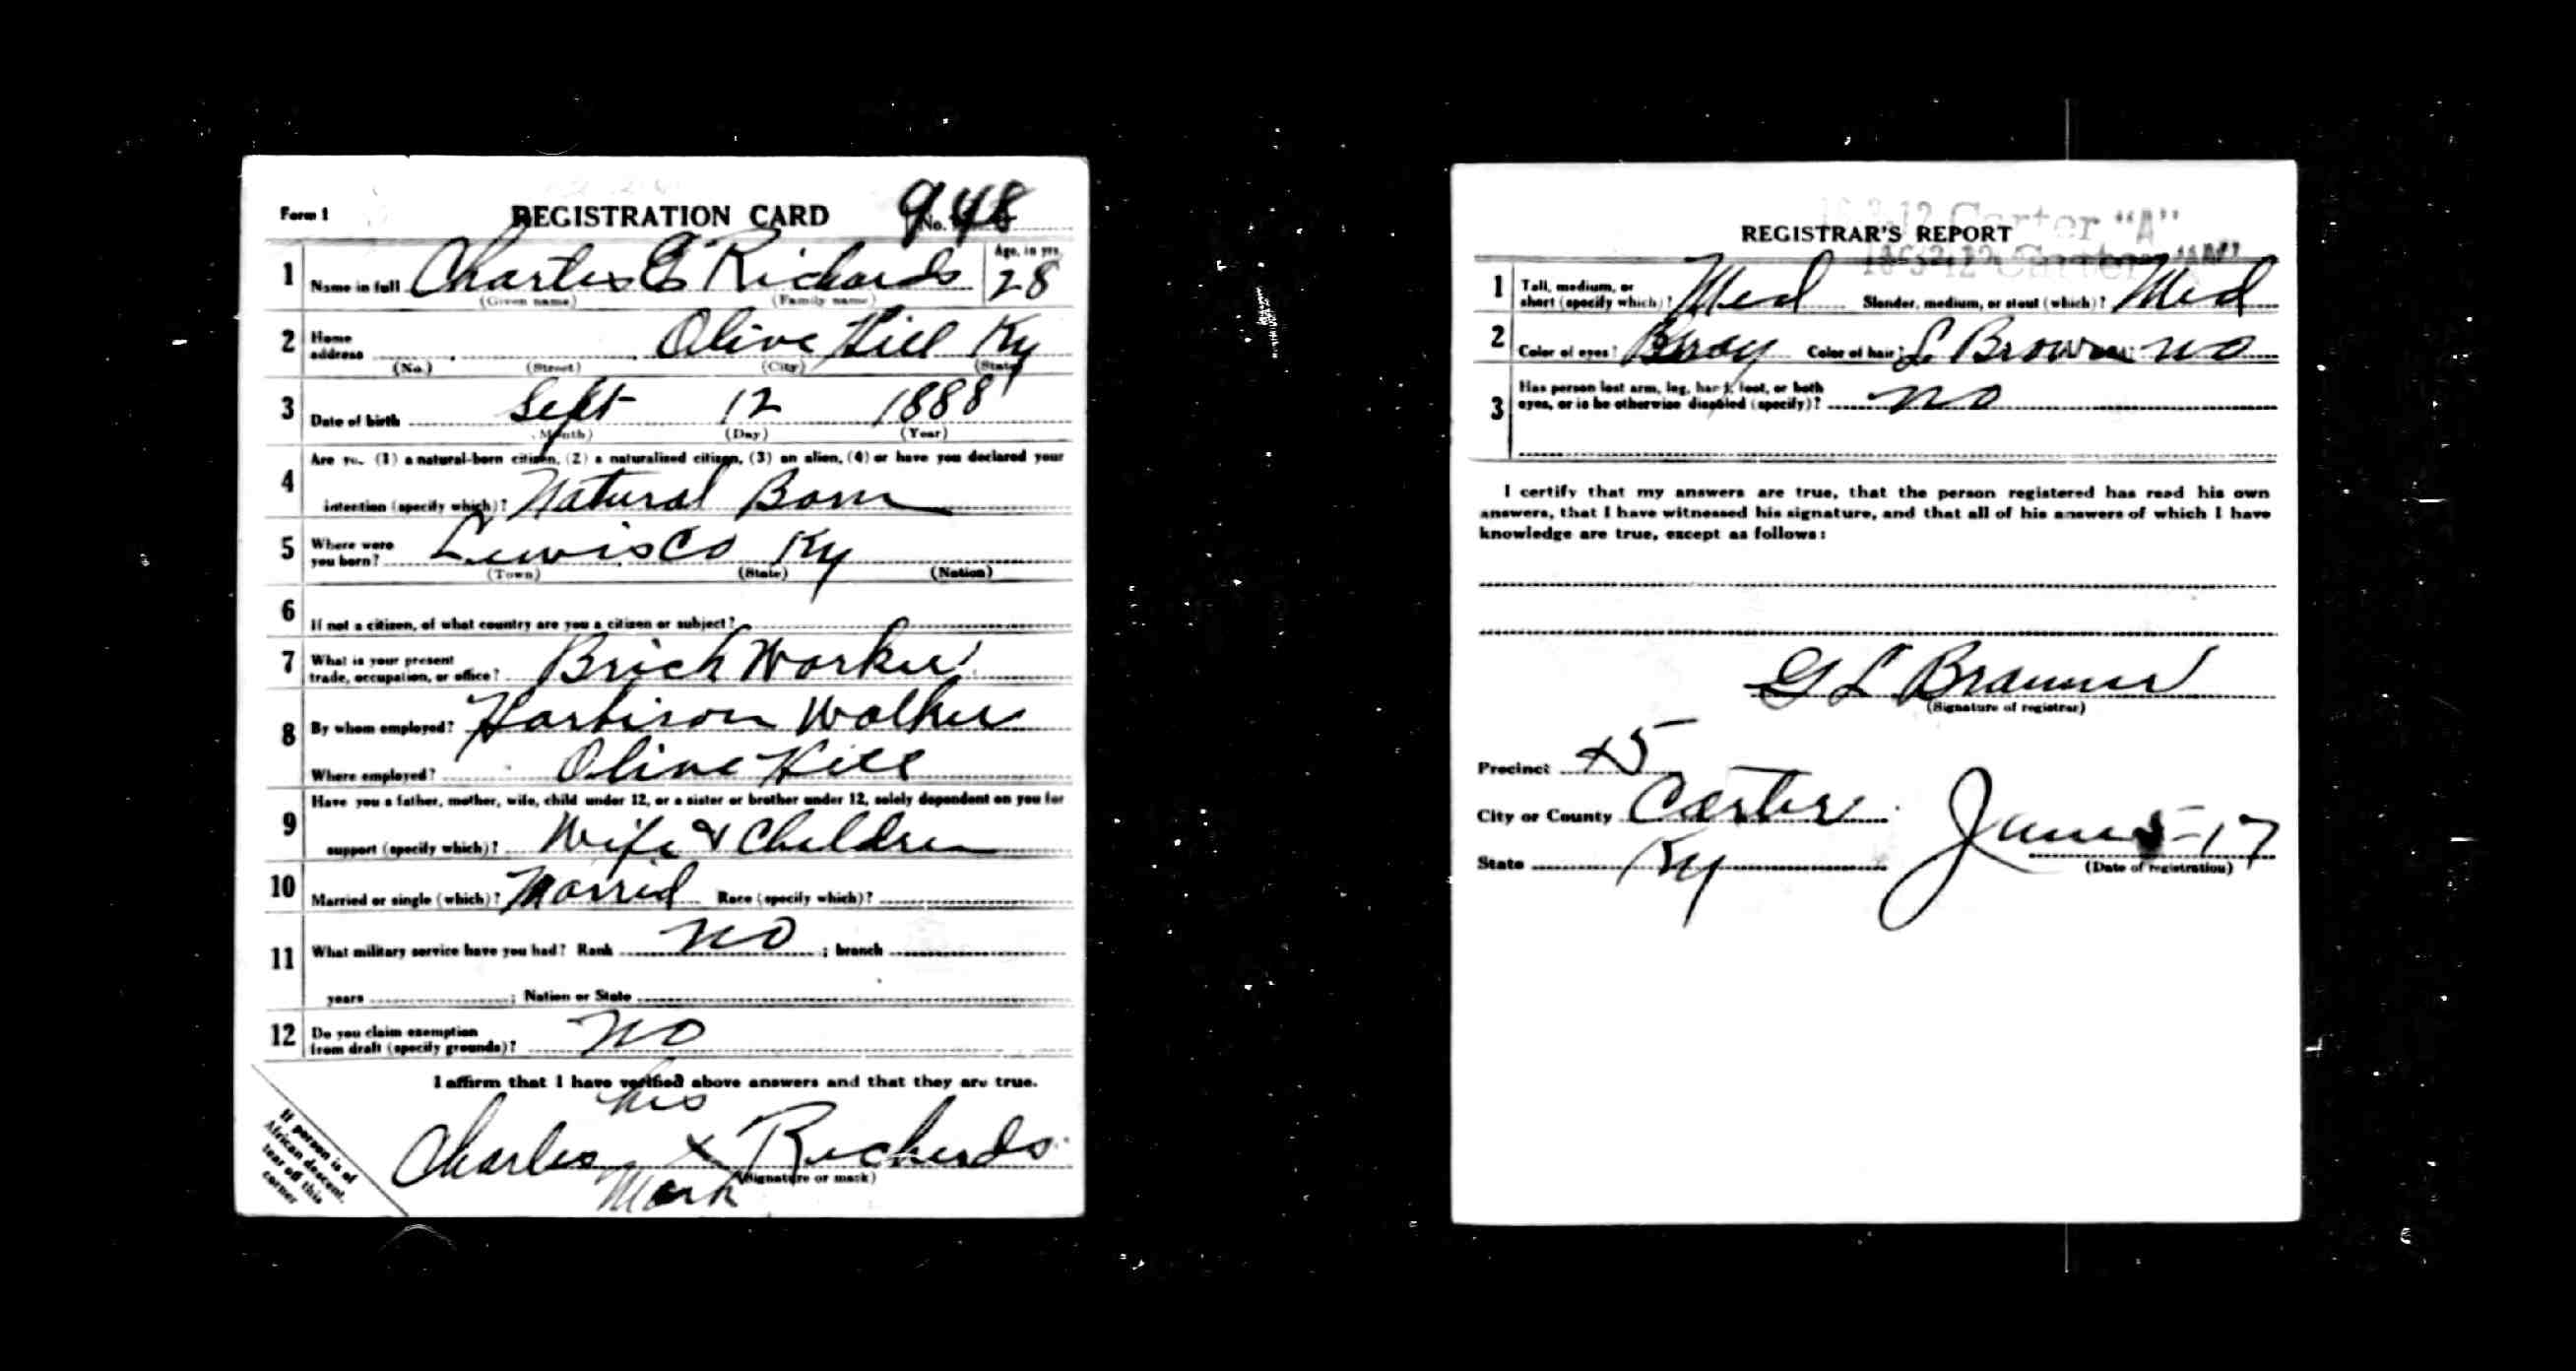 Form 1
REGISTRATION CARD No. 948
1 Name in full Charles E Richards Age, in yrs. 28
(Given name) (Family name)
2 Home address Olive Hill Ky
(No.) (Street) (City) (State)
3 Date of birth Sept 12 1888
(Month) (Day) (Year)
4 Are you (1) a natural-born citizen, (2) a naturalized citizen, (3) an alien, (4) or have you declared your
intention (specify which)? Natural Born
5 Where were you born? Lewis Co Ky
(Town) (State) (Nation)
6 If not a citizen, of what country are you a citizen or subject?
7 What is your present trade, occupation, or office? Brick Worker
8 By whom employed? Harbison Walker
Where employed? Olive Hill
9 Have you a father, mother, wife, child under 12, or a sister or brother under 12, solely dependent on you for
support (specify which)? Wife & Children
10 Married or single (which)? Marrid Race (specify which)?
11 What military service have you had? Rank no ; branch
years ; Nation or State
12 Do you claim exemption from draft (specify grounds)? no
I affirm that I have verified above answers and that they are true.
his
Charles x Richards
Mark (Signature or mark)
If person is of
African descent,
tear off this
corner
16-3-12 Carter "A"
REGISTRAR'S REPORT
16-3-12 Carter "A"
1 Tall, medium, or short (specify which)? Med Slender, medium, or stout (which)? Med
2 Color of eyes? Color of hair? L Brown no
3 Has person lost arm, leg, hand, foot, or both
eyes, or is he otherwise disabled (specify)? no
I certify that my answers are true, that the person registered has read his own
answers, that I have witnessed his signature, and that all of his answers of which I have
knowledge are true, except as follows:
G L
(Signature of registrar)
Precinct 5
City or County Carter
State Ky June 5-17
(Date of registration)